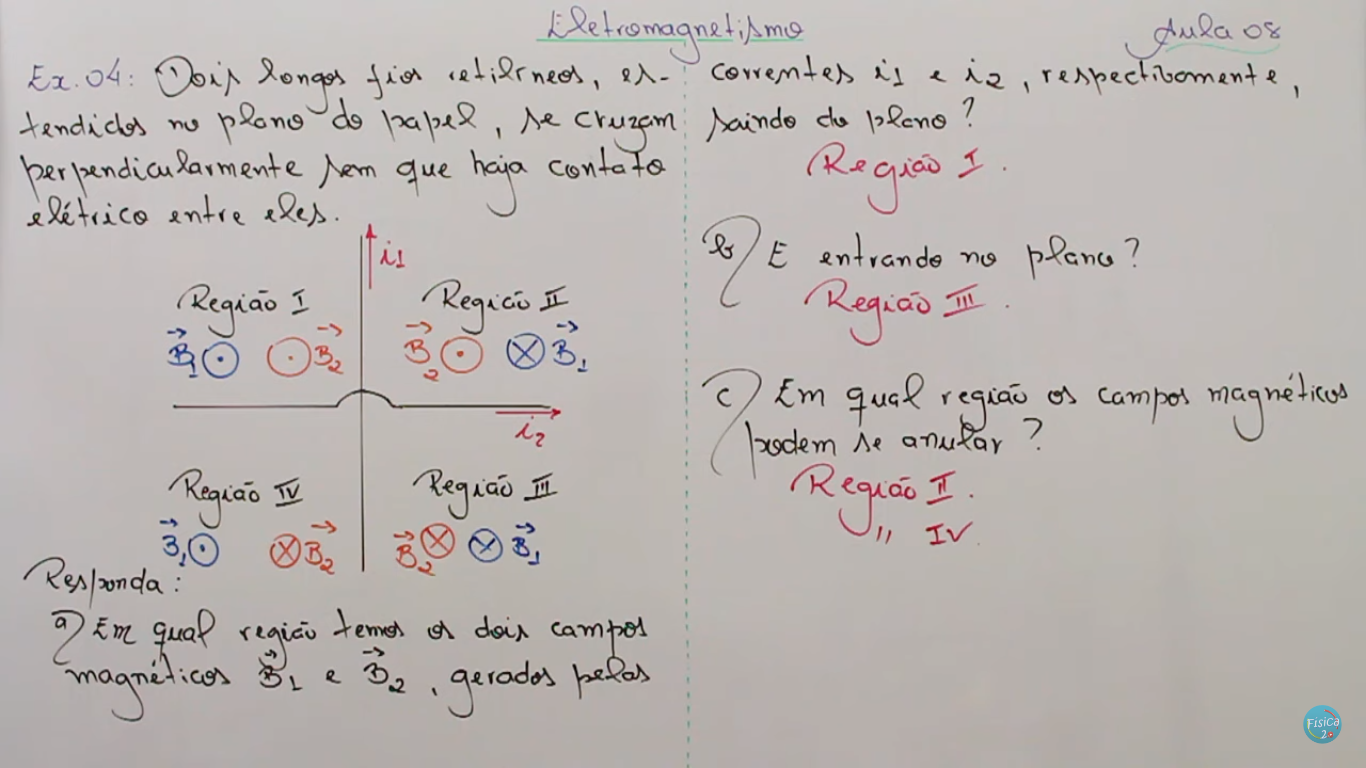 Eletromagnetismo
Aula 08
Ex. 04: Dois longos fios retilíneos, es-
tendidos no plano do papel, se cruzam
perpendicularmente sem que haja contato
elétrico entre eles.
i1
Região I
Região II
B1 B2
B2 B1
i2
Região IV
Região III
B1 B2
B2 B1
Responda:
a) Em qual região temos os dois campos
magnéticos B1 e B2, gerados pelas
correntes i1 e i2, respectivamente,
saindo do plano?
Região I.
b) E entrando no plano?
Região III.
c) Em qual região os campos magnéticos
podem se anular?
Região II.
" IV.
Física
2.0